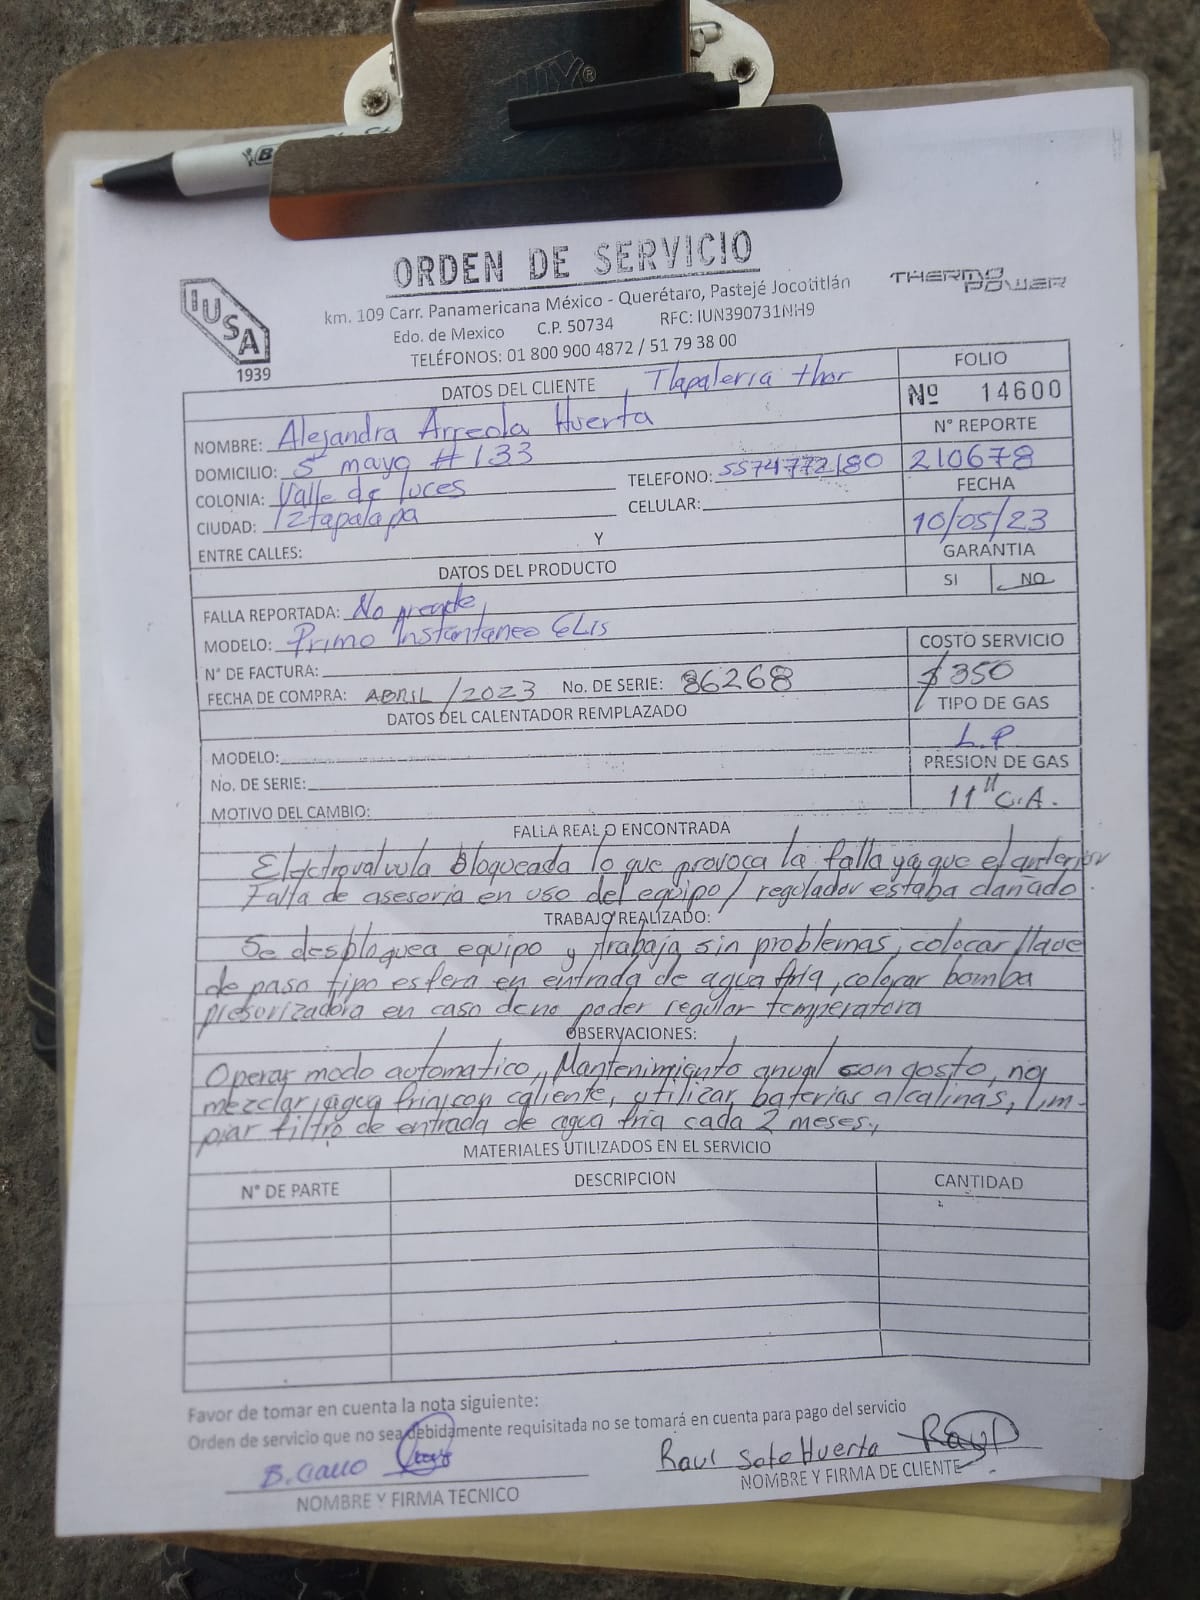 ORDEN DE SERVICIO
IUSA
1939
THERMO
POWER
km. 109 Carr. Panamericana México - Querétaro, Pastejé Jocotitlán
Edo. de Mexico C.P. 50734 RFC: IUN390731NH9
TELÉFONOS: 01 800 900 4872 / 51 79 38 00
DATOS DEL CLIENTE Tlapaleria thor
FOLIO
Nº 14600
NOMBRE: Alejandra Arreola Huerta
N° REPORTE
DOMICILIO: 5 mayo # 133
TELEFONO: 5574772180
210678
COLONIA: Valle de luces
CELULAR:
FECHA
CIUDAD: Iztapalapa
10/05/23
ENTRE CALLES: Y
GARANTIA
DATOS DEL PRODUCTO
SI NO
FALLA REPORTADA: No prende
MODELO: Primo Instantaneo ELis
COSTO SERVICIO
N° DE FACTURA:
$350
FECHA DE COMPRA: ABRIL /2023 No. DE SERIE: 86268
TIPO DE GAS
DATOS DEL CALENTADOR REMPLAZADO
L.P
MODELO:
PRESION DE GAS
No. DE SERIE:
11" C.A.
MOTIVO DEL CAMBIO:
FALLA REAL O ENCONTRADA
Electrovalvula Bloqueada lo que provoca la falla ya que el anterior
Falta de asesoria en uso del equipo / regulador estaba dañado.
TRABAJO REALIZADO:
Se desbloquea equipo y trabaja sin problemas, colocar llave
de paso tipo esfera en entrada de agua fria, colocar bomba
presurizadora en caso de no poder regular temperatora
OBSERVACIONES:
Operar modo automatico,, Mantenimiento anual con costo, no
mezclar agua fria con caliente, utilizar baterias alcalinas, lim-
piar filtro de entrada de agua fria cada 2 meses,
MATERIALES UTILIZADOS EN EL SERVICIO
N° DE PARTE DESCRIPCION CANTIDAD
Favor de tomar en cuenta la nota siguiente:
Orden de servicio que no sea debidamente requisitada no se tomará en cuenta para pago del servicio
Raul Soto Huerta Raul
NOMBRE Y FIRMA TECNICO
NOMBRE Y FIRMA DE CLIENTE